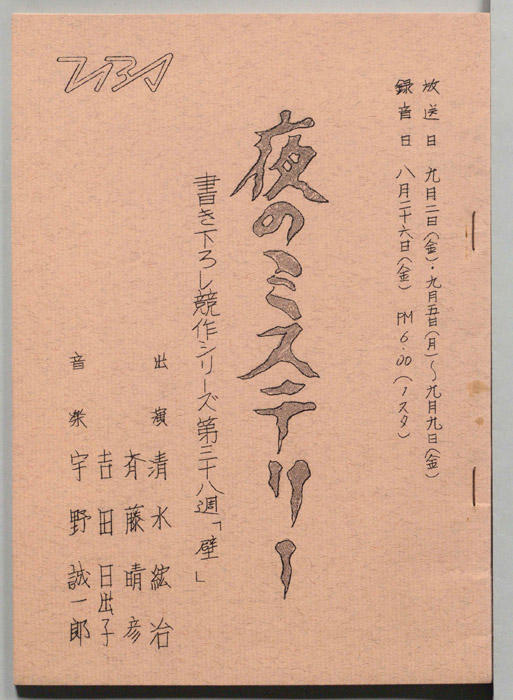 放送日 九月二日(金)・九月五日(月)〜九月九日(金)
録音日 八月二十六日(金) PM 6.00(1スタ)
夜のミステリー
書き下ろし競作シリーズ第三十八週「壁」
出演 清水紘治
斉藤晴彦
吉田日出子
音楽 宇野誠一郎
TBS